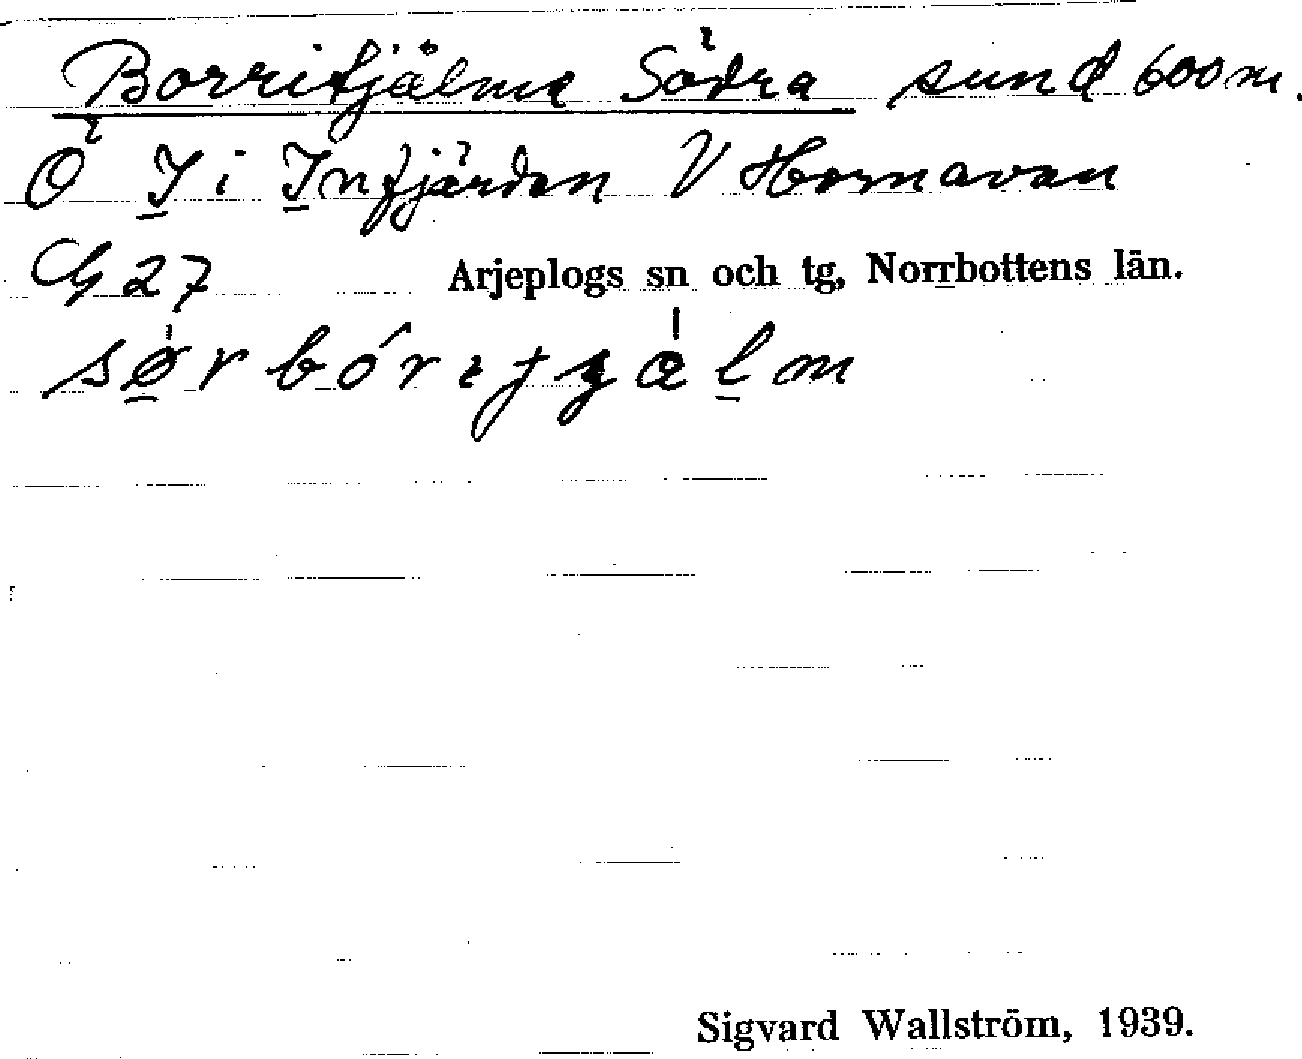 Borritjälme Södra sund 600 m.
Ö I i Infjärden V Hornavan
G 27 Arjeplogs sn och tg, Norrbottens län.
Sigvard Wallström, 1939.